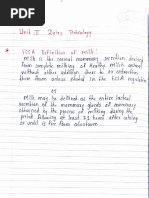 Unit II Dairy Technology
* FSSA Definition of milk:
Milk is the normal mammary secretion derived
from complete milking of healthy milch animal
without either addition there to or extraction
there from unless otherwise provided in the FSSA regulation
OR
Milk may be defined as the entire lacteal
secretion of the mammary glands of mammary
obtained by the process of milking during the
period following at least 72 hours after calving
or until is free from colostrum.